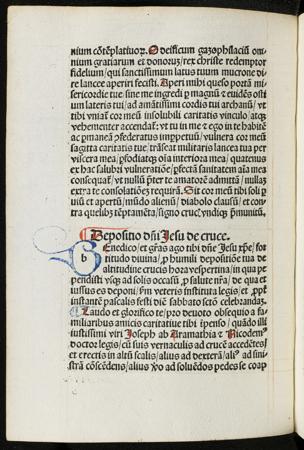 nium cōtēplatiuoꝝ. O deificum gazophilaciū om-
nium gratiarum et donorum/ rex christe redemptor
fidelium/ qui sanctissimum latus tuum mucrone di-
re lancee aperiri fecisti. Aperi mihi queso portā mi-
sericordie tue/ sine me ingredi ꝑ magnū & euidēs osti
um lateris tui/ ad amātissimi cordis tui archanū/ vt
tibi vniaꝉ cor meū insolubili caritatis vinculo/ atqꝫ
vehementer accendaꝉ: vt tu in me & ego in te habitē
ac ꝑmanea ꝯfederatus imppetuū/ vulnera cor meū
sagitta caritatis tue/ trāseat militaris lancea tua per
viscera mea/ ꝑfodiatqꝫ oīa interiora mea/ quatenus
ex hac salubri vulneratiōe/ ꝑfectā sanitatem aīa mea
consequaꝉ/ vt nullū ꝑter te amatorē admittā/ nullaꝫ
extra te consolatiōeꝫ requirā. Sit cor meū tibi soli ꝑ
uiū et apertū/ mūdo alienū/ diabolo clausū/ et con-
tra quelibꝫ tēptamēta/ signo cruc̄ vndiqꝫ ꝑmunitū.
Depositio dn̄i Jesu de cruce.
Benedico et gr̄as ago tibi dn̄e Jesu xp̄e/ for
titudo diuina/ ꝓ humili depositiōe tua de
altitudine crucis hora vespertina/ in qua pe
pendisti vsqꝫ ad solis occasū/ ꝓ salute nr̄a/ de qua et
iussus es deponi/ ꝓpter veteris instituta legis/ et ꝓpꝉ
instantē pascalis festi diē sabbato sctō celebrandaꝫ.
Laudo et glorifico te/ ꝓro deuoto obsequio a fa-
miliaribus amicis caritatiue tibi ipenso/ quādo illi
iustissimi viri Joseph ab Aramathia & Nicodemꝰ
doctor legis/ cū suis vernaculis ad crucē accedētes/
et erectis in altū scalis/ alius ad dexterā/ aliꝰ ad sini-
strā cōscēdens/ alius ꝟo ad soluēdos pedes se coap